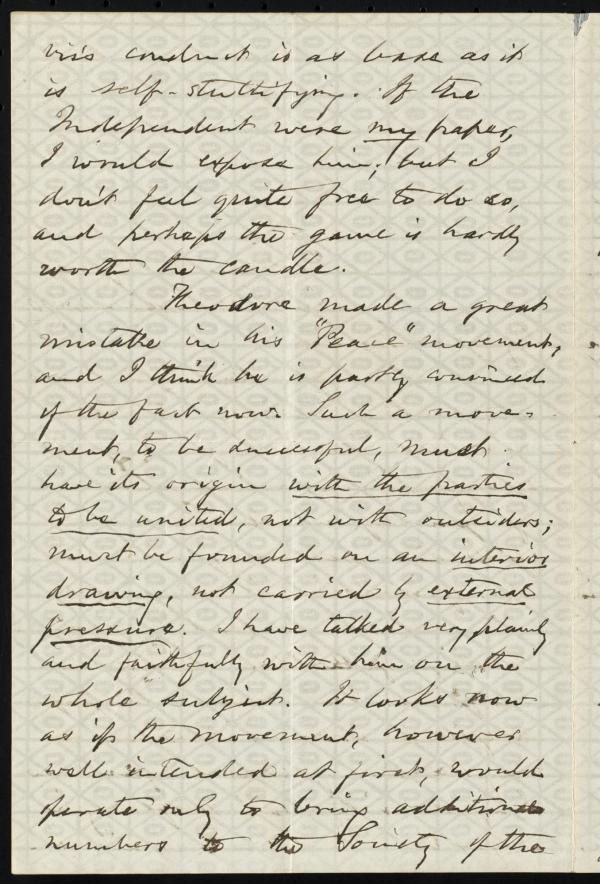 vis's conduct is as base as it
is self-stultifying. If the
Independent were my paper,
I would expose him; but I
don't feel quite free to do so,
and perhaps the game is hardly
worth the candle.
Theodore made a great
mistake in his "Peace" movement,
and I think he is partly convinced
of the fact now. Such a move-
ment, to be successful, must
have its origin with the parties
to be united, not with outsiders;
must be founded on an interior
drawing, not carried by external
pressure. I have talked very plainly
and faithfully with him on the
whole subject. It looks now
as if the movement, however
well intended at first, would
perate only to bring additional
numbers to the Society of the